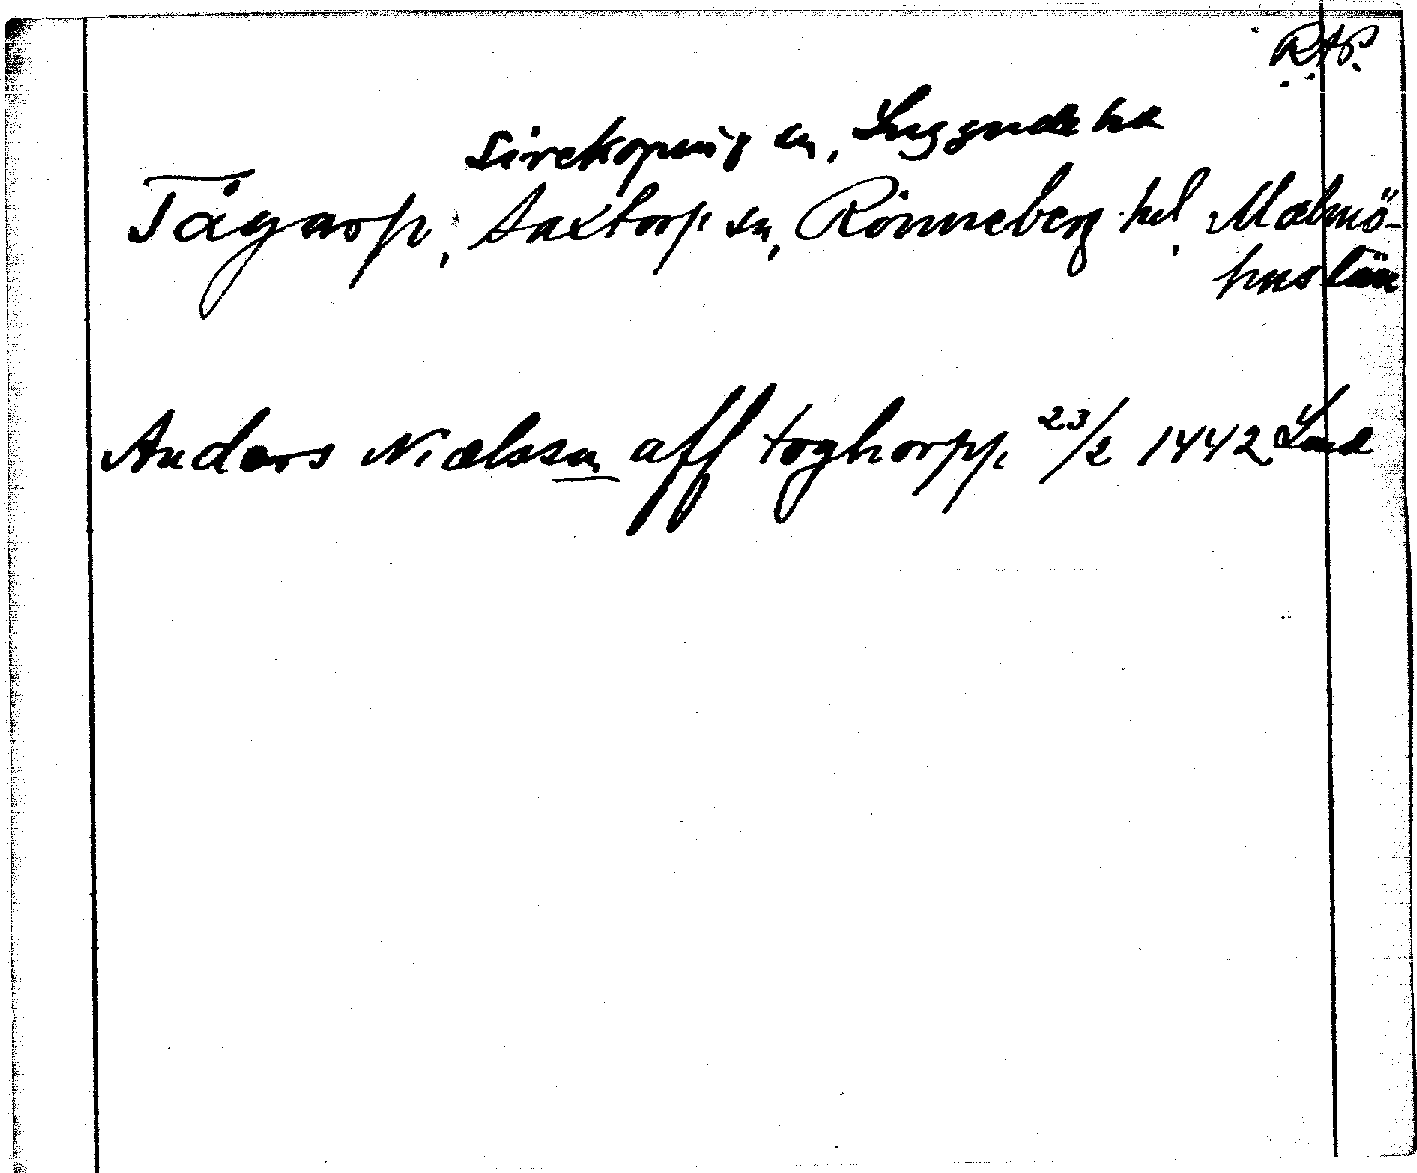 R.A.P.
Sireköping sn, Luggude hd
Tågarp, Saxtorp sn, Rönneberg hd, Malmö-
hus län
Anders Nielssen aff toghorpp. 23/2 1442 Lund